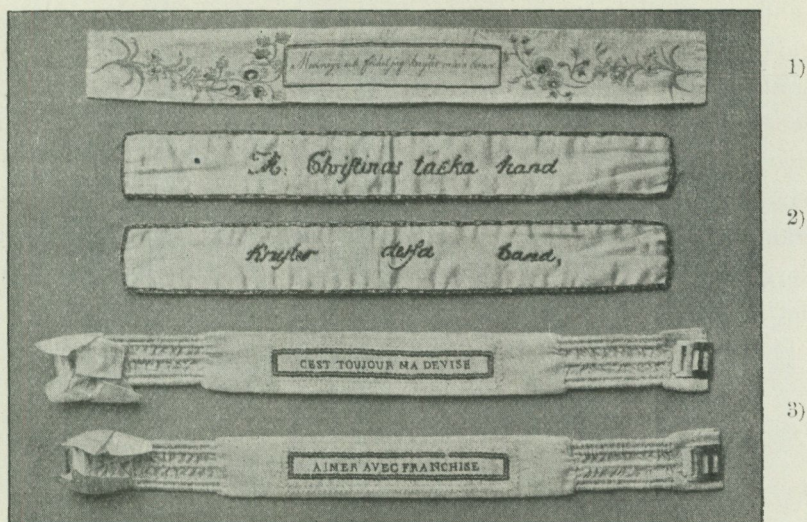 1)
M: Christinas täcka hand
2)
knyter dessa band,
CEST TOUJOUR MA DEVISE
3)
AIMER AVEC FRANCHISE